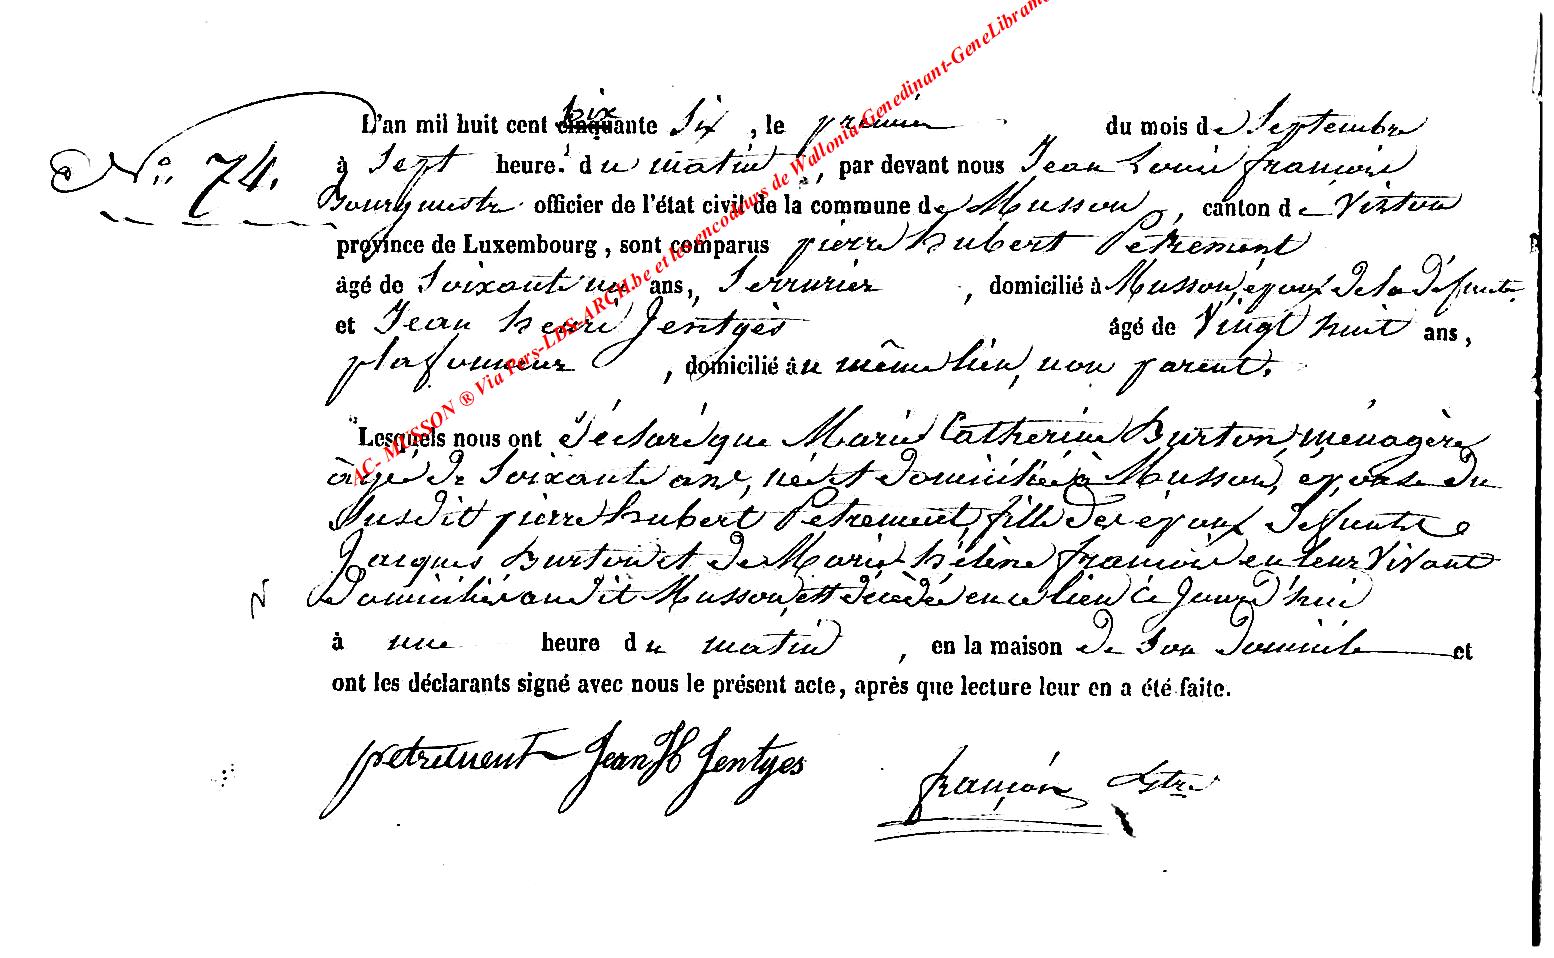 AC- MUSSON ® Via Pers-LDS-ARCH.be et les encodeurs de Wallonia-Genedinant-GeneLibrame
No. 74.
L'an mil huit cent cinquante six Six, le premier du mois de Septembre
à Sept heures du matin, par devant nous Jean Louis françois
Bourgmestre officier de l'état civil de la commune de Musson, canton de Virton
province de Luxembourg, sont comparus pierre hubert Pétrement
âgé de Soixante un ans, Serrurier, domicilié à Musson, époux de la défunte,
et Jean henri Jentgès âgé de Vingt huit ans,
plafonneur, domicilié au même lieu, non parent.
Lesquels nous ont déclaré que Marie Catherine Burton, ménagère
âgée de Soixante ans, née et domiciliée à Musson, épouse du
susdit pierre hubert Pétrement, fille des époux défunts
Jacques Burton et de Marie hélène françois en leur vivant
domiciliés audit Musson, est décédée en ce lieu ce jourd'hui
à une heure du matin, en la maison de son domicile et
ont les déclarants signé avec nous le présent acte, après que lecture leur en a été faite.
petrement Jean H Jentges françois